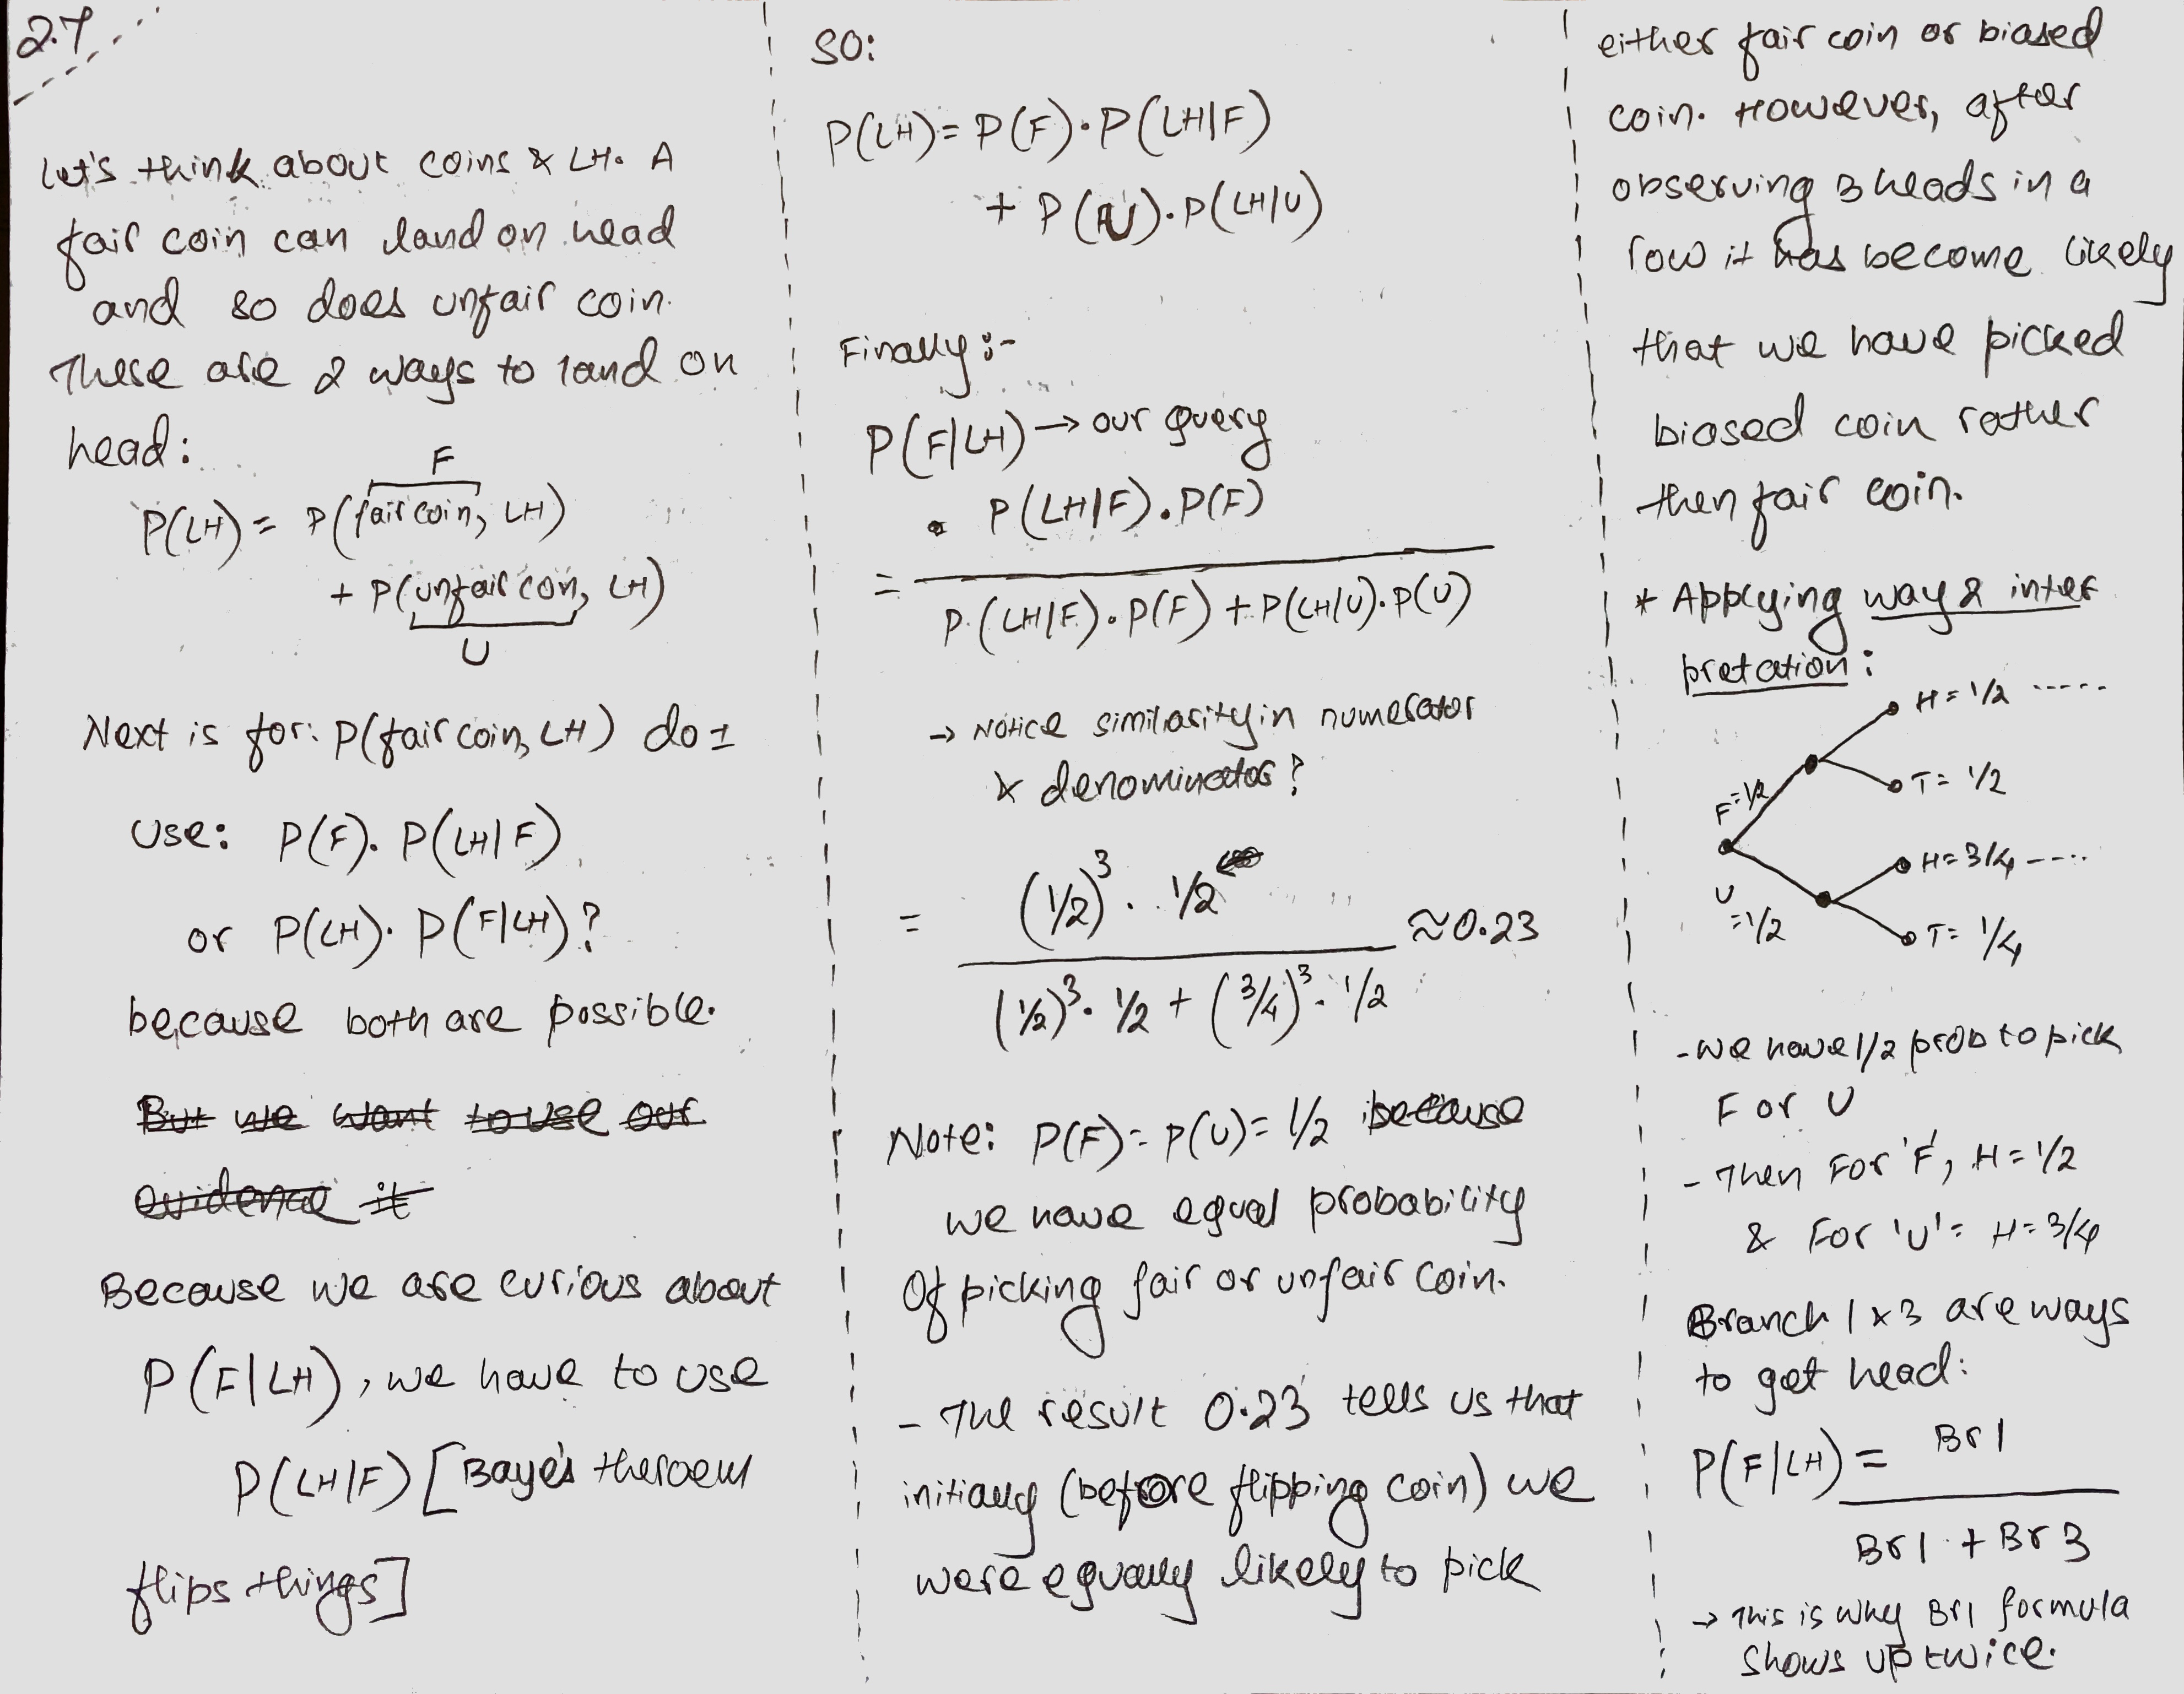 2.7
Let's think about coins & LH. A
fair coin can land on head
and so does unfair coin.
These are 2 ways to land on
head:
F
P(LH) = P(fair coin, LH)
+ P(unfair coin, LH)
U
Next is for: P(fair coin, LH) do I
use: P(F). P(LH|F)
or P(LH). P(F|LH)?
because both are possible.
But we want to use our
evidence it
Because we are curious about
P(F|LH), we have to use
P(LH|F) [Baye's theroem
flips things]
SO:
P(LH) = P(F)·P(LH|F)
+ P(U)·P(LH|U)
Finally:-
P(F|LH) → our query
P(LH|F)·P(F)
=
P(LH|F)·P(F) + P(LH|U)·P(U)
→ Notice similarity in numerator
& denominator?
(1/2)³ · 1/2
= ≈ 0.23
(1/2)³· 1/2 + (3/4)³· 1/2
Note: P(F) = P(U) = 1/2 because
we have equal probability
Of picking fair or unfair coin.
- The result 0.23 tells us that
initially (before flipping coin) we
were equally likely to pick
either fair coin or biased
coin. However, after
observing 3 heads in a
row it has become likely
that we have picked
biased coin rather
then fair coin.
* Applying way 2 inter
pretation:
H = 1/2 -----
F = 1/2
T = 1/2
H = 3/4 ----
U
= 1/2
T = 1/4
- we have 1/2 prob to pick
F or U
- Then For 'F', H = 1/2
& For 'U' = H = 3/4
Branch 1 & 3 are ways
to get head:
P(F|LH) = Br1
Br1 + Br3
→ This is why Br1 formula
shows up twice.